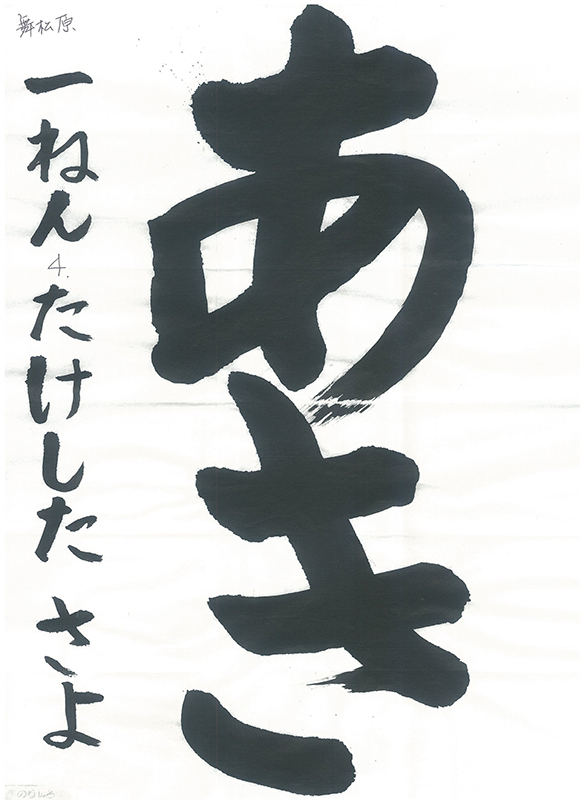 あき
舞松原
一ねん
4.
たけした さよ